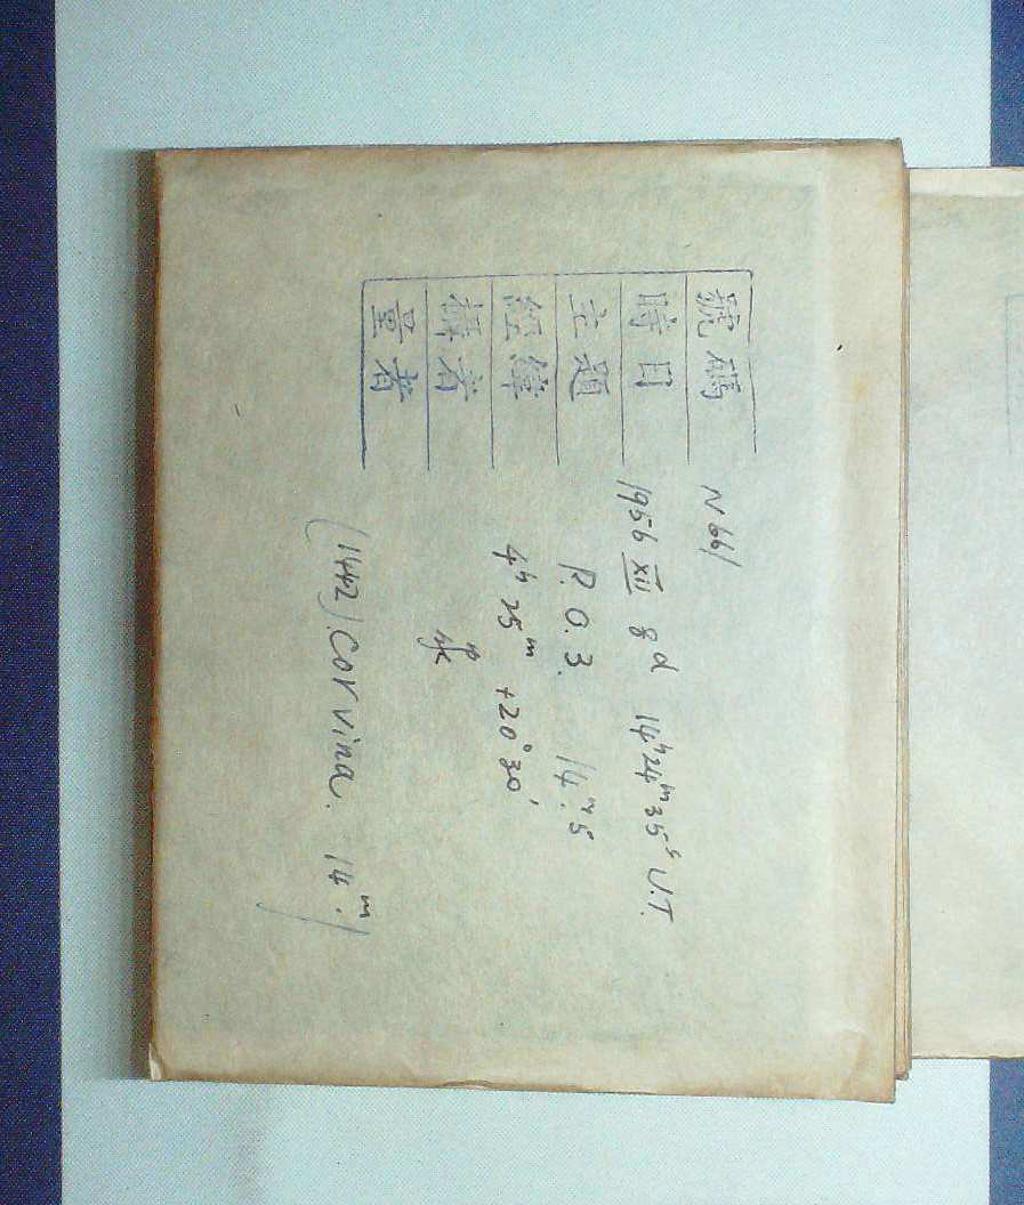 號碼 N 661
時日 1956 XII 8ᵈ 14ʰ24ᵐ35ˢ U.T.
主題 P. O. 3. 14.ᵐ5
經緯 4ʰ 25ᵐ +20°30'
攝者
量者
(1442) Corvina. 14ᵐ.)